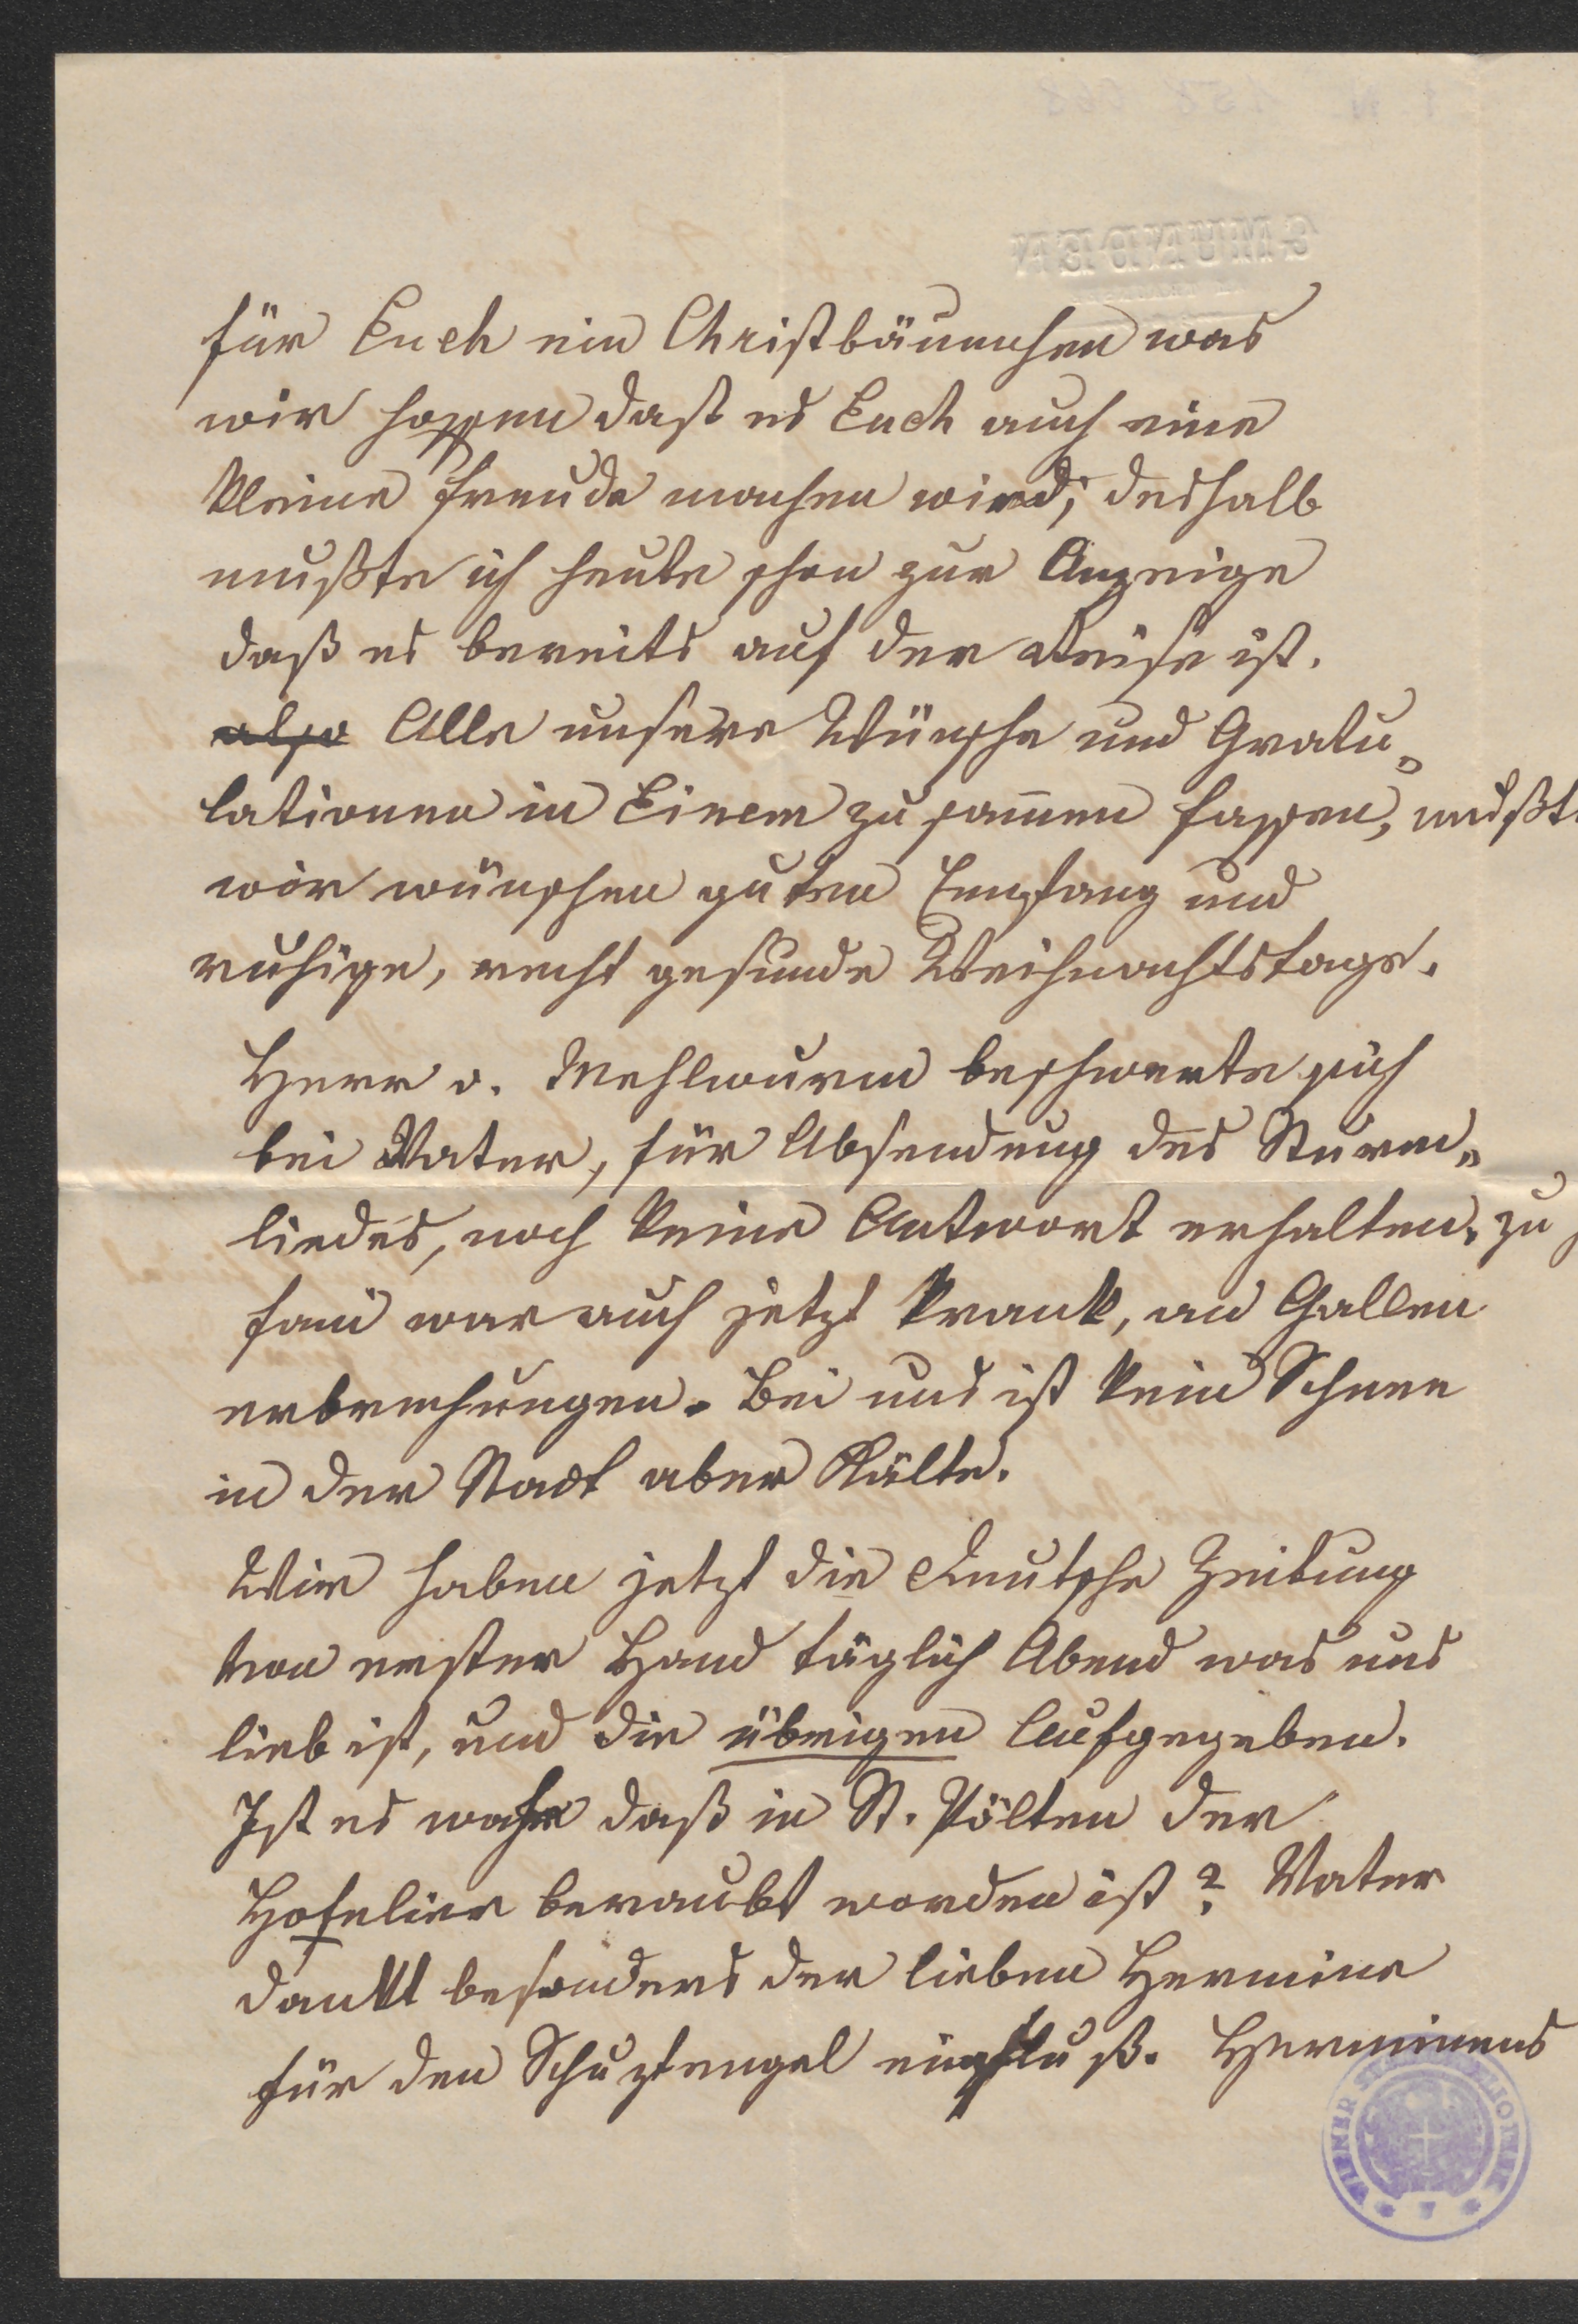 GMUNDEN
für Euch ein Christbäumchen was
wir hoffen dast es Euch auch eine
kleine Freude machen wird; deshalb
mußte ich heute schon zur Anzeige
daß es bereits auf der Reise ist.
also Alle unsere Wünsche und Gratu„
lationen in Einem zusam̄en fassen, mußt
wir wünschen guten Empfang und
ruhige, recht gesunde Weihnachtstage.
Herr v. Mehlwurm beschwerte sich
bei Vater, für Absendung des Sturm„
liedes, noch keine Antwort erhalten. zu
war auch jetzt krank, an Gallen
erbrechungen. Bei uns ist kein Schnee
in der Stadt aber Kälte.
Wir haben jetzt die Deutsche Zeitung
von erster Hand täglich Abend was uns
lieb ist, und die übrigen Aufgegeben.
Ist es wahr daß in St. Pölten der
Hofelier beraubt worden ist? Vater
dankt besonders der lieben Hermine
für den Schuztengel einfluß. Herminens
WIENER STADTBIBLIOTHEK